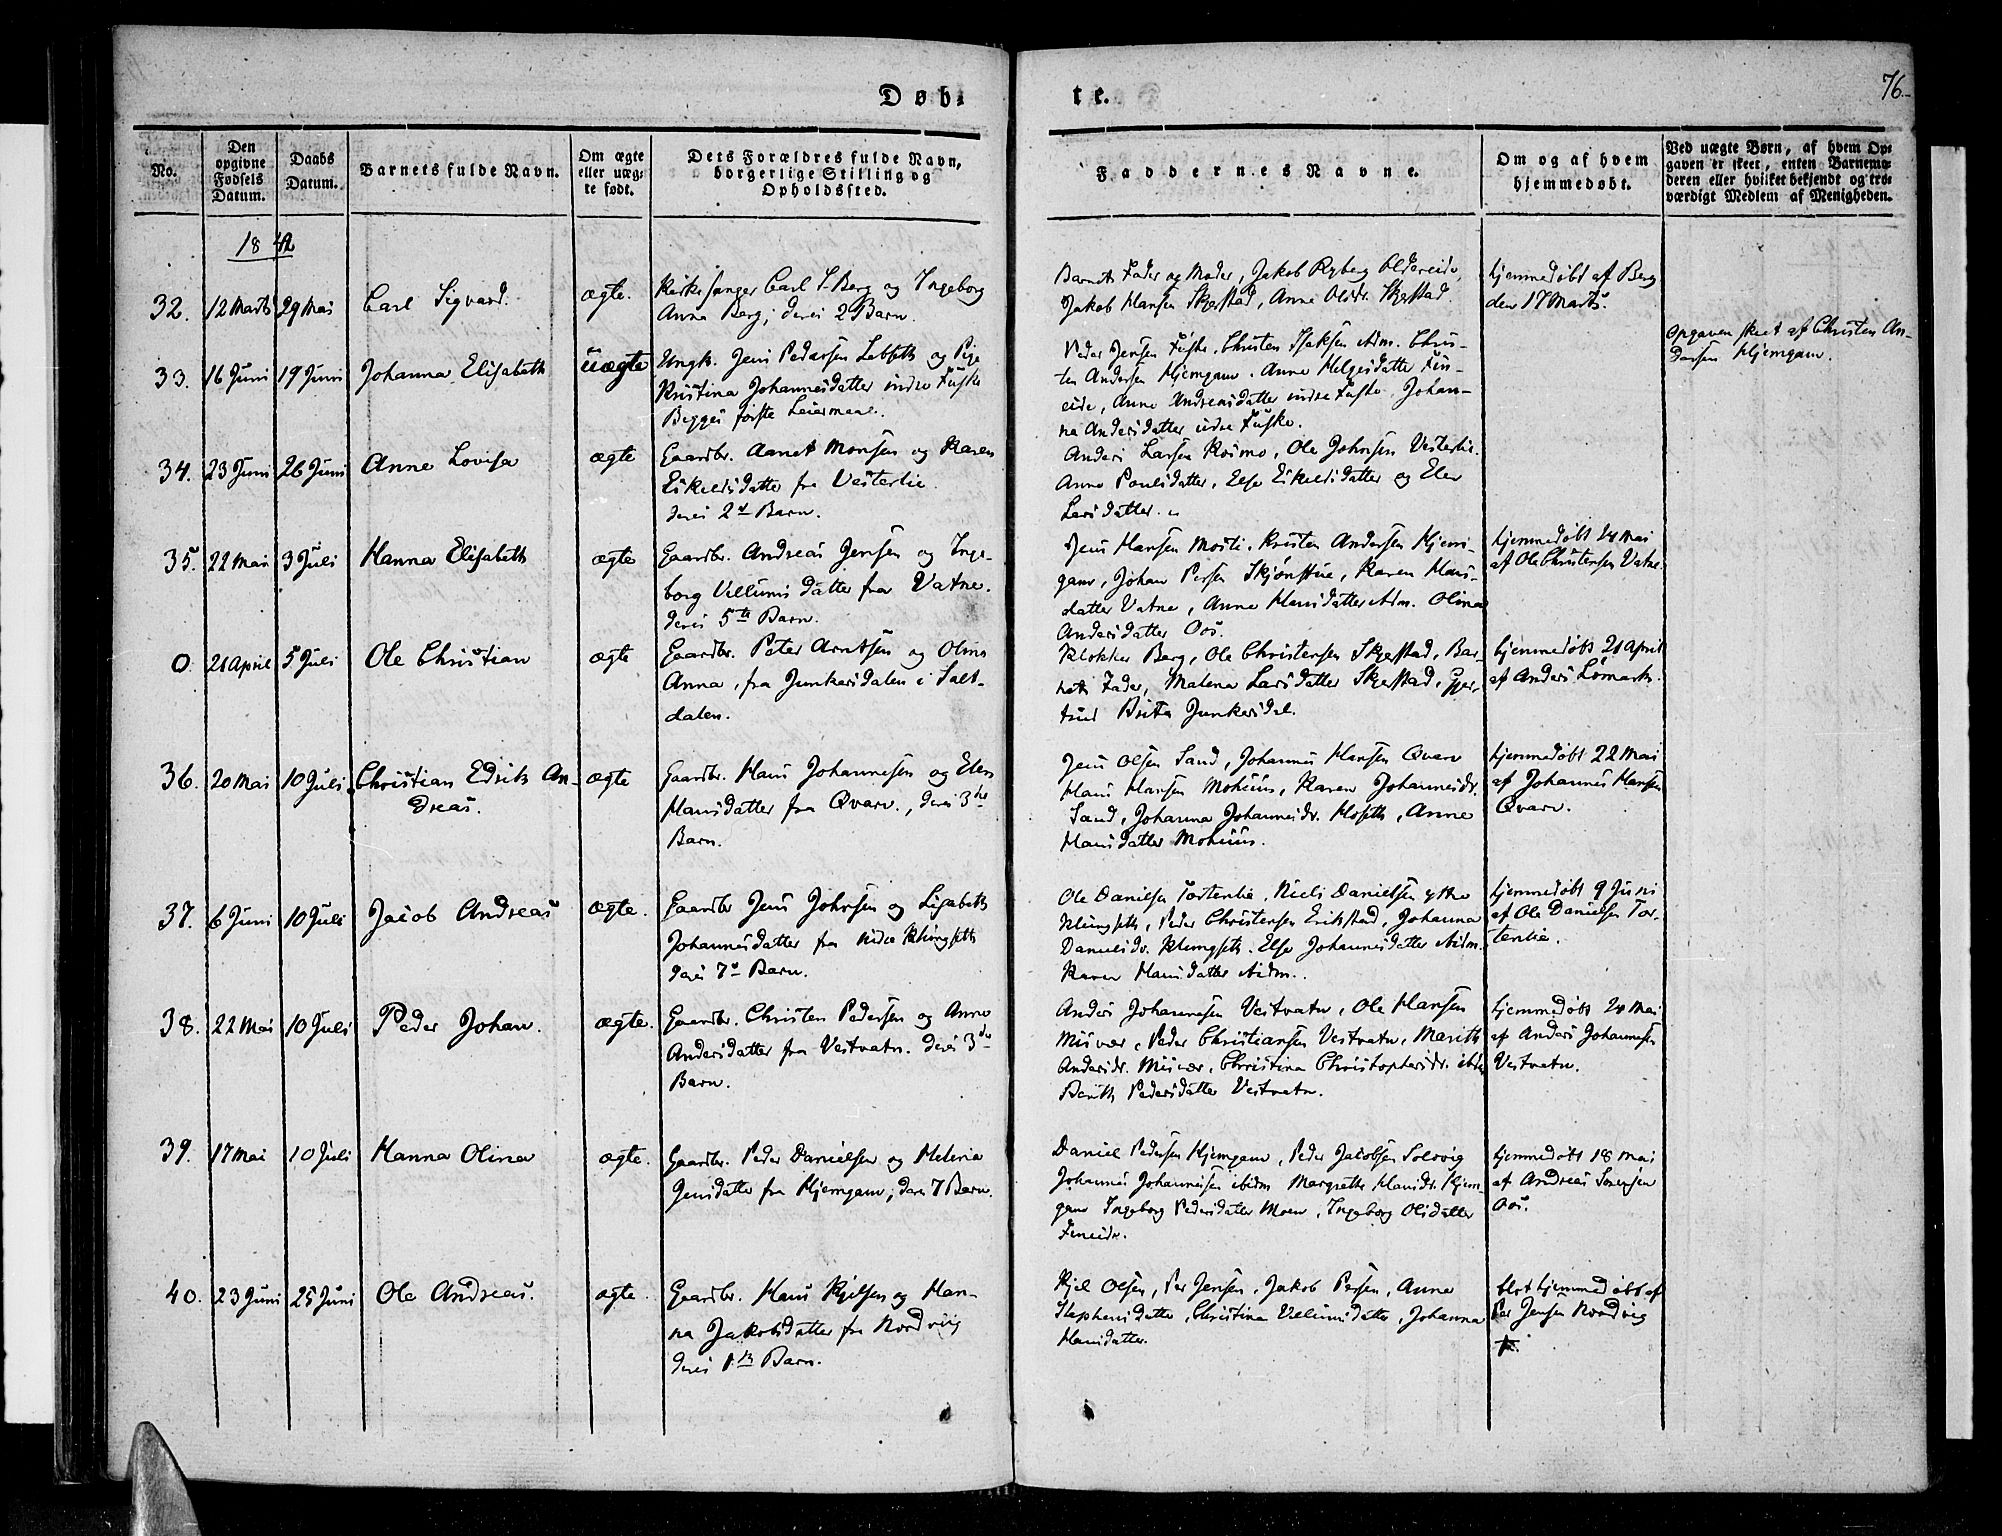 Døb-
te.
76.
No.
Den
opgivne
Fødsels
Datum.
Daabs
Datum.
Barnets fulde Navn.
Om ægte
eller uæg-
te født.
Dets Forældres fulde Navn,
borgerlige Stilling og
Opholdssted.
Faddernes Navne.
Om og af hvem
hjemmedøbt.
Ved uægte Børn, af hvem Op-
gaven er skeet, enten Barnemo-
deren eller hvilket bekjendt og tro-
værdigt Medlem af Menigheden.
1842
32. 12 Marts 29 Mai Carl Sigvard. ægte.
Kirkesanger Carl S. Berg og Ingeborg
Anna Berg; deres 2 Barn.
Barnets Fader og Moder, Jakob Ryberg Oldereide,
Jakob Hansen Skjestad, Anne Oldr. Skjestad.
hjemmedøbt af Berg
den 17 Marts.
33. 16 Juni 19 Juni Johanna Elisabeth uægte
Ungk. Jens Pedersen Labseth og Pige
Kristina Johannesdatter indre Fuske
Begges første Leiermaal.
Peder Jensen Fuske. Christen Isaksen ibdm. Chris-
ten Andersen Hjemgam. Anne Helgesdatter Fin-
eide, Anne Andreasdatter indre Fuske. Johan-
na Andersdatter indre Fuske.
Opgaven skeet af Christen An-
dersen Hjemgam.
34. 23 Juni 26 Juni Anne Lovisa ægte
Gaardbr. Aanet Monsen og Karen
Eskelsdatter fra Vesterlie.
deres 2d Barn.
Anders Larsen Rosmo, Ole Johnsen Vesterlie.
Anne Poulsdatter, Else Eskelsdatter og Elen
Larsdatter.
35. 22 Mai 3 Juli Hanna Elisabeth ægte
Gaardbr. Andreas Jensen og Inge-
borg Villumsdatter fra Vatne.
deres 5te Barn.
Jens Hansen Mosti. Kristen Andersen Hjem-
gam, Johan Persen Skjønstue, Karen Hans-
datter Vatne, Anne Hansdatter ibdm. Olina
Andersdatter Oos.
hjemmedøbt 24 Mai
af Ole Christensen Vatne
0. 21 April 5 Juli Ole Christian ægte
Gaardbr. Peter Arntsen og Olina
Anna, fra Junkersdalen i Salt-
dalen.
Klokker Berg, Ole Christensen Skjestad, Bar-
nets Fader, Malena Larsdatter Skjestad, Gjer-
trud Brita Junkersdal.
hjemmedøbt 21 April
af Anders Lømark.
36. 20 Mai 10 Juli Christian Edrik An-
dreas. ægte
Gaardbr. Hans Johannesen og Elen
Hansdatter fra Qvarv., deres 3die
Barn.
Jens Olsen Sand, Johannes Hansen Qvarv
Hans Hansen Mohuus, Karen Johannesdr.
Sand, Johanna Johannesdr. Hoseth, Anne
Hansdatter Mohuus.
hjemmedøbt 22 Mai
af Johannes Hansen
Qvarv.
37. 6 Juni 10 Juli Jacob Andreas ægte.
Gaardbr Jens Johnsen og Lisabeth
Johannesdatter fra indre Klungseth
deres 7de Barn.
Ole Danielsen Tortenlie. Niels Danielsen ytre
Klungseth, Peder Christensen Erikstad, Johanna
Danielsdr. Klungseth. Else Johannesdatter ibidm.
Karen Hansdatter ibidm.
hjemmedøbt 9 Juni
af Ole Danielsen Tor-
tenlie.
38. 22 Mai 10 Juli Peder Johan. ægte.
Gaardbr. Christen Pedersen og Anne
Andersdatter fra Vestvatn. deres 3die
Barn.
Anders Johannesen Vestvatn, Ole Hansen
Misvær, Peder Christiansen Vestvatn, Marith
Andersdr. Misvær. Christina Christophersdr. ibdm
Berith Pedersdatter Vestvatn.
hjemmedøbt 24 Mai
af Anders Johannesen
Vestvatn.
39. 17 Mai 10 Juli Hanna Olina ægte.
Gaardbr. Peder Danielsen og Helena
Jensdatter fra Hjemgam; deres 7 Barn.
Daniel Pedersen Hjemgam, Peder Jacobsen Solsvig
Johannes Johannesen ibidm Margrethe Hansdr. Hjem-
gam Ingeborg Pedersdatter Moen, Ingeborg Olsdatter
Fineide.
hjemmedøbt 18 Mai
af Andreas Sørensen
Oos.
40. 23 Juni 25 Juni Ole Andreas. ægte.
Gaardbr. Hans Kjelsen og Han-
na Jakobsdatter fra Nordvig
deres 1ste Barn.
Kjel Olsen, Per Jensen, Jakob Persen, Anna
Stephensdatter, Christina Villumsdatter, Johanna
Hansdatter.
blot hjemmedøbt af
Per Jensen Nordvig